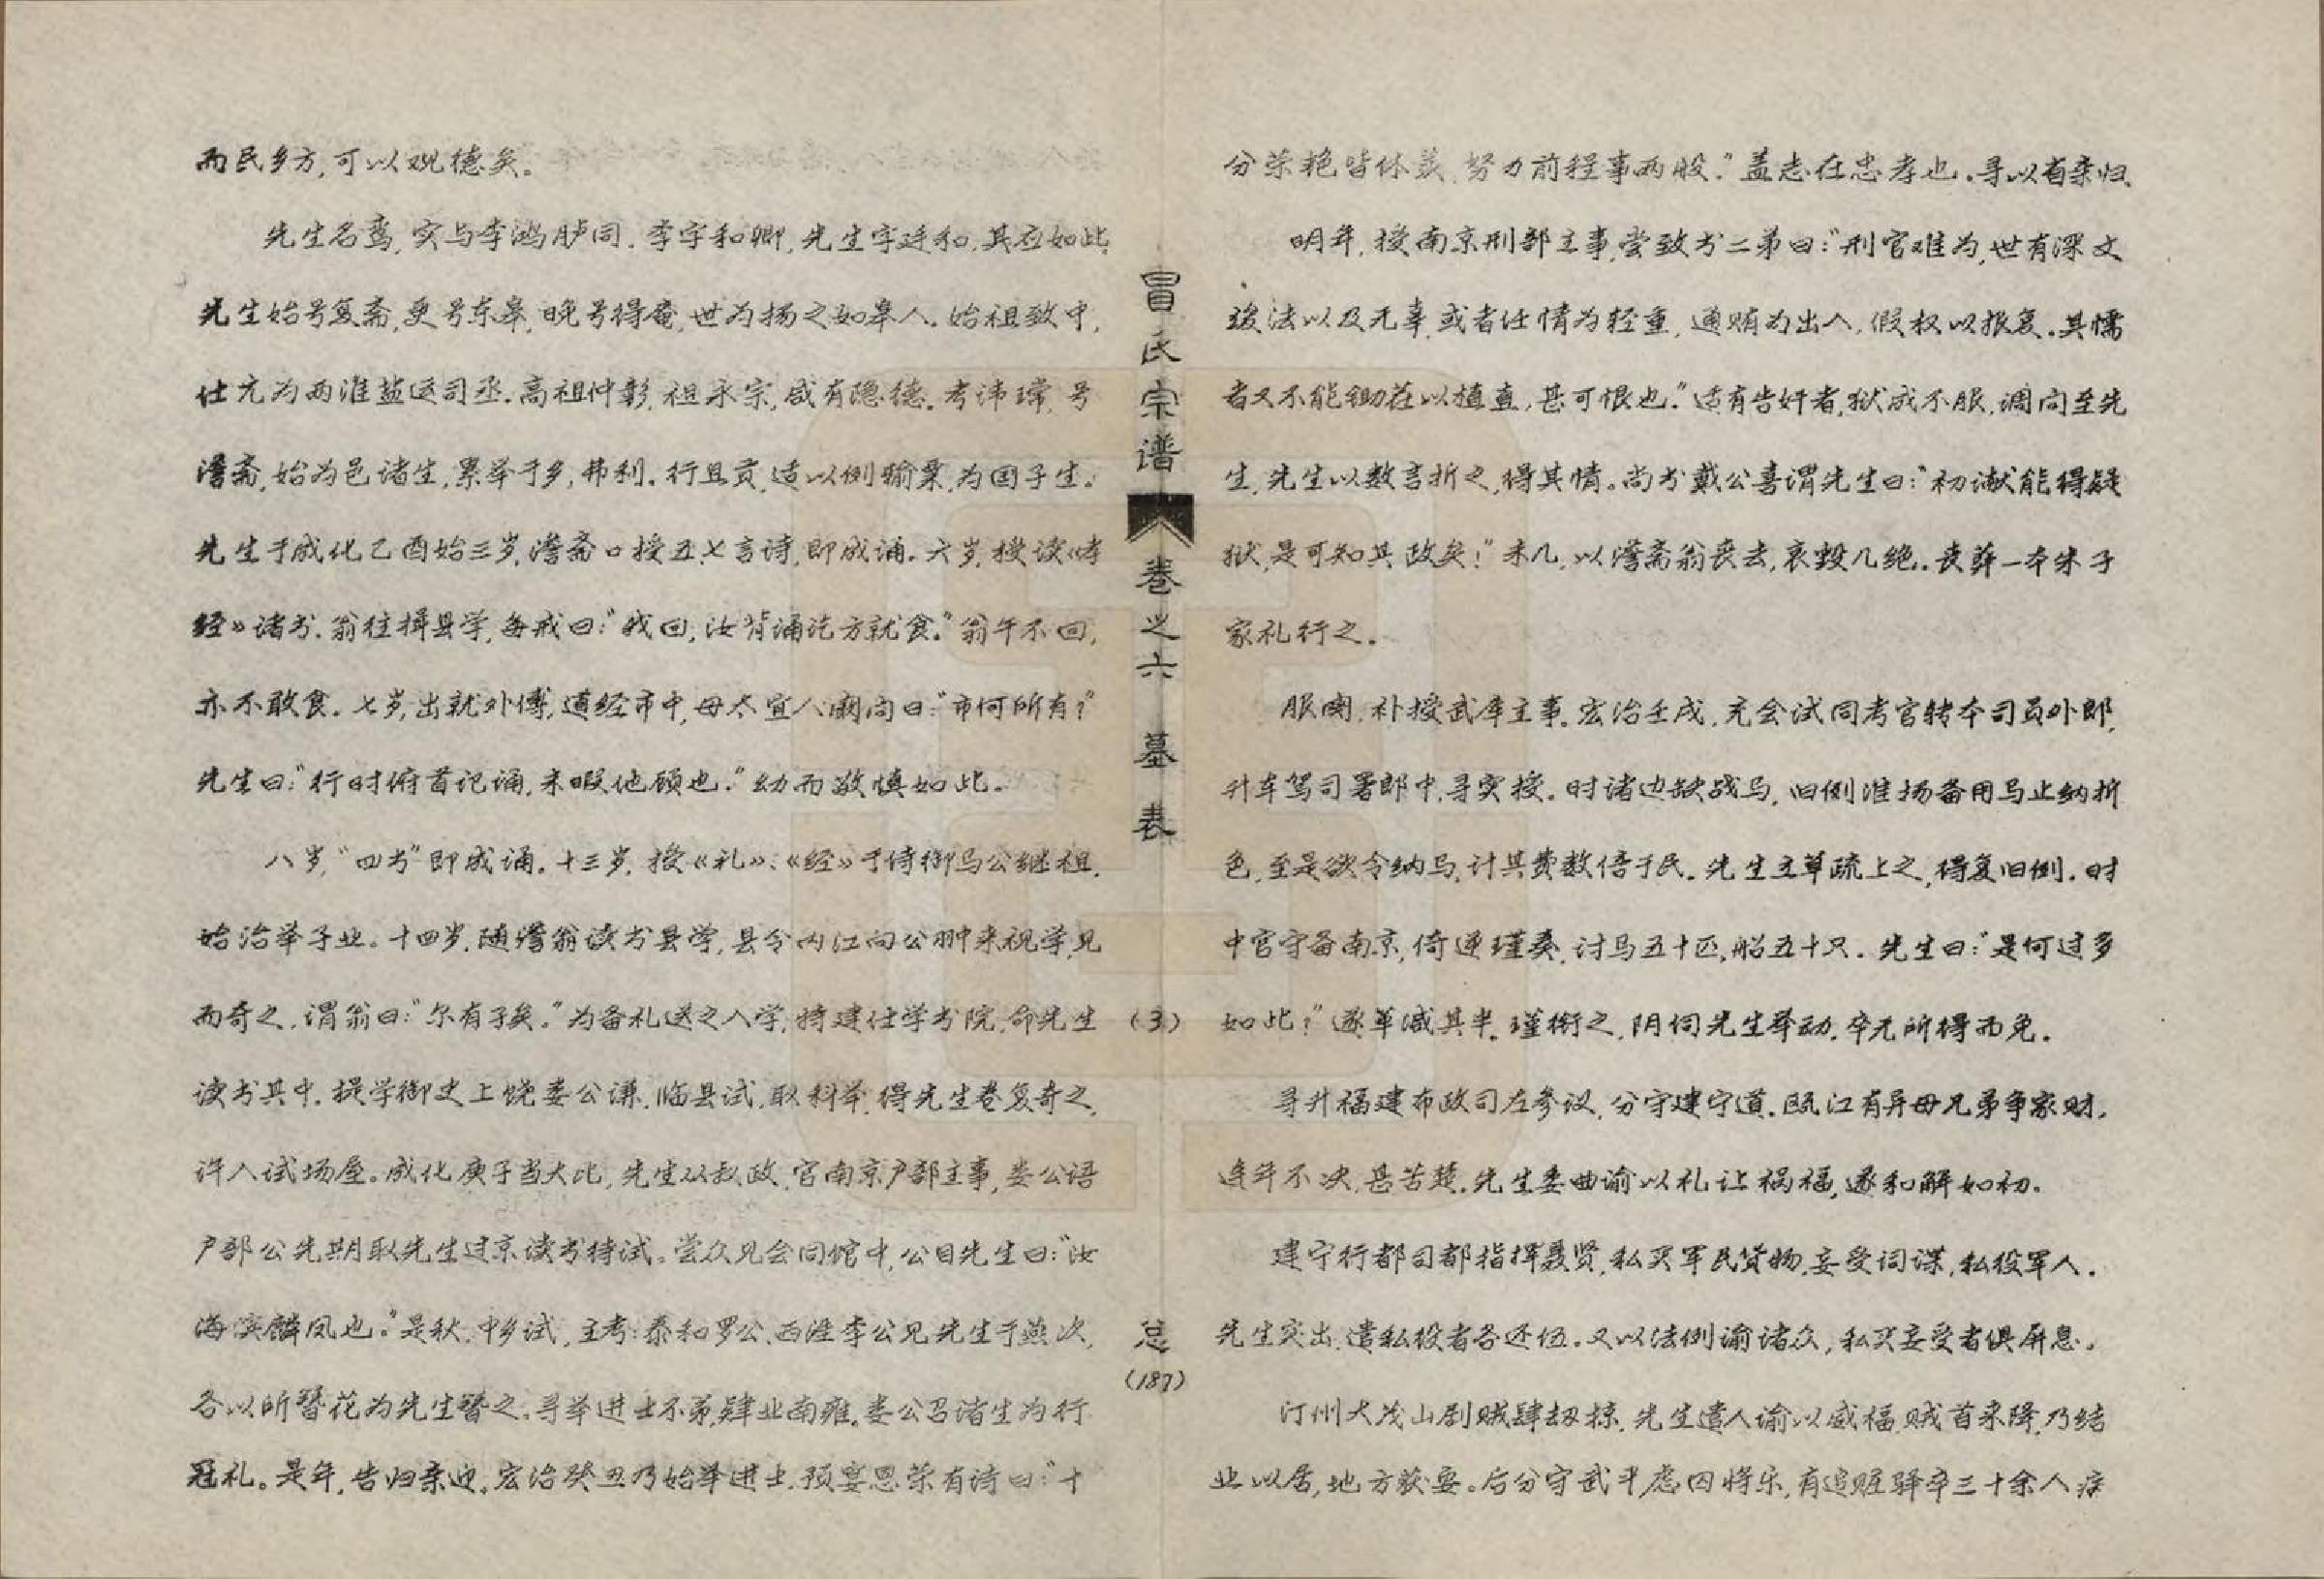 而民乡方,可以观德矣。
先生名鸾,实与李鸿胪同.李字和卿,先生字廷和,其应如此,
先生始号复斋,更号东皋,晚号得庵,世为扬之如皋人.始祖致中,
仕元为两淮盐运司丞.高祖仲彰,祖永宗,咸有隐德.考讳瑺,号
澹斋,始为邑诸生,累举于乡,弗利.行且贡,适以例输粟,为国子生.
先生于成化乙酉始三岁,澹斋口授五、七言诗,即成诵.六岁,授读《孝
经》诸书.翁往揖县学,每戒曰:“我回,汝背诵讫方就食.”翁午不回,
亦不敢食.七岁,出就外傅,道经市中,母太宜人闻问曰:“市何所有?”
先生曰:“行时俯首记诵,未暇他顾也.”幼而敬慎如此.
八岁,“四书”即成诵.十三岁,授《礼》、《经》于侍御马公继祖,
始治举子业。十四岁,随澹翁读书县学,县令内江向公翀来视学,见
而奇之,谓翁曰:“尔有子矣.”为备礼送之入学,特建仕学书院,命先生
读书其中.提学御史上饶娄公谦,临县试,取科举,得先生卷复奇之,
许入试场屋。成化庚子当大比,先生从叔政,官南京户部主事,娄公语
户部公先期取先生过京读书待试。尝众见会同馆中,公目先生曰:“汝
海滨麟凤也.”是秋,中乡试,主考:泰和罗公、西涯李公见先生于燕次,
各以所簪花为先生簪之.寻举进士不第,肄业南雍.娄公召诸生为行
冠礼。是年,告归亲迎.宏治癸丑乃始举进士.预宴恩荣有诗曰:“十
冒氏宗谱
卷之六
墓表
(3)
总
(187)
分荣艳皆休羡,努力前程事两般.”盖志在忠孝也.寻以省亲归.
明年,授南京刑部主事,尝致书二弟曰:“刑官难为,世有深文
峻法以及无辜,或者任情为轻重,通贿为出入,假权以报复.其懦
者又不能锄茬以植直,甚可恨也.”适有告奸者,狱成不服,调问至先
生,先生以数言折之,得其情。尚书戴公喜谓先生曰:“初谳能得疑
狱,是可知其政矣!”未几,以澹斋翁丧去,哀毁几绝.丧葬一本朱子
家礼行之.
服阕,补授武库主事.宏治壬戌,充会试同考官转本司员外郎,
升车驾司署郎中,寻实授.时诸边缺战马,旧例淮扬备用马止纳折
色,至是欲令纳马,计其费数倍于民.先生主草疏上之,得复旧例.时
中官守备南京,倚逆瑾奏,讨马五十匹,船五十只.先生曰:“是何过多
如此?”遂革减其半.瑾衔之,阴伺先生举动,卒无所得而免.
寻升福建布政司左参议,分守建宁道.瓯江有异母兄弟争家财,
连年不决,甚苦楚.先生委曲谕以礼让祸福,遂和解如初.
建宁行都司都指挥聂贤,私买军民货物,妄受词谋,私役军人.
先生突出,遣私役者各还伍.又以法例谕诸众,私买妄受者俱屏息.
汀州大茂山剧贼肆劫掠,先生遣人谕以威福,贼首来降,乃结
业以居,地方获安.后分守武平虑囚将乐,有追赃驿卒三十余人疾